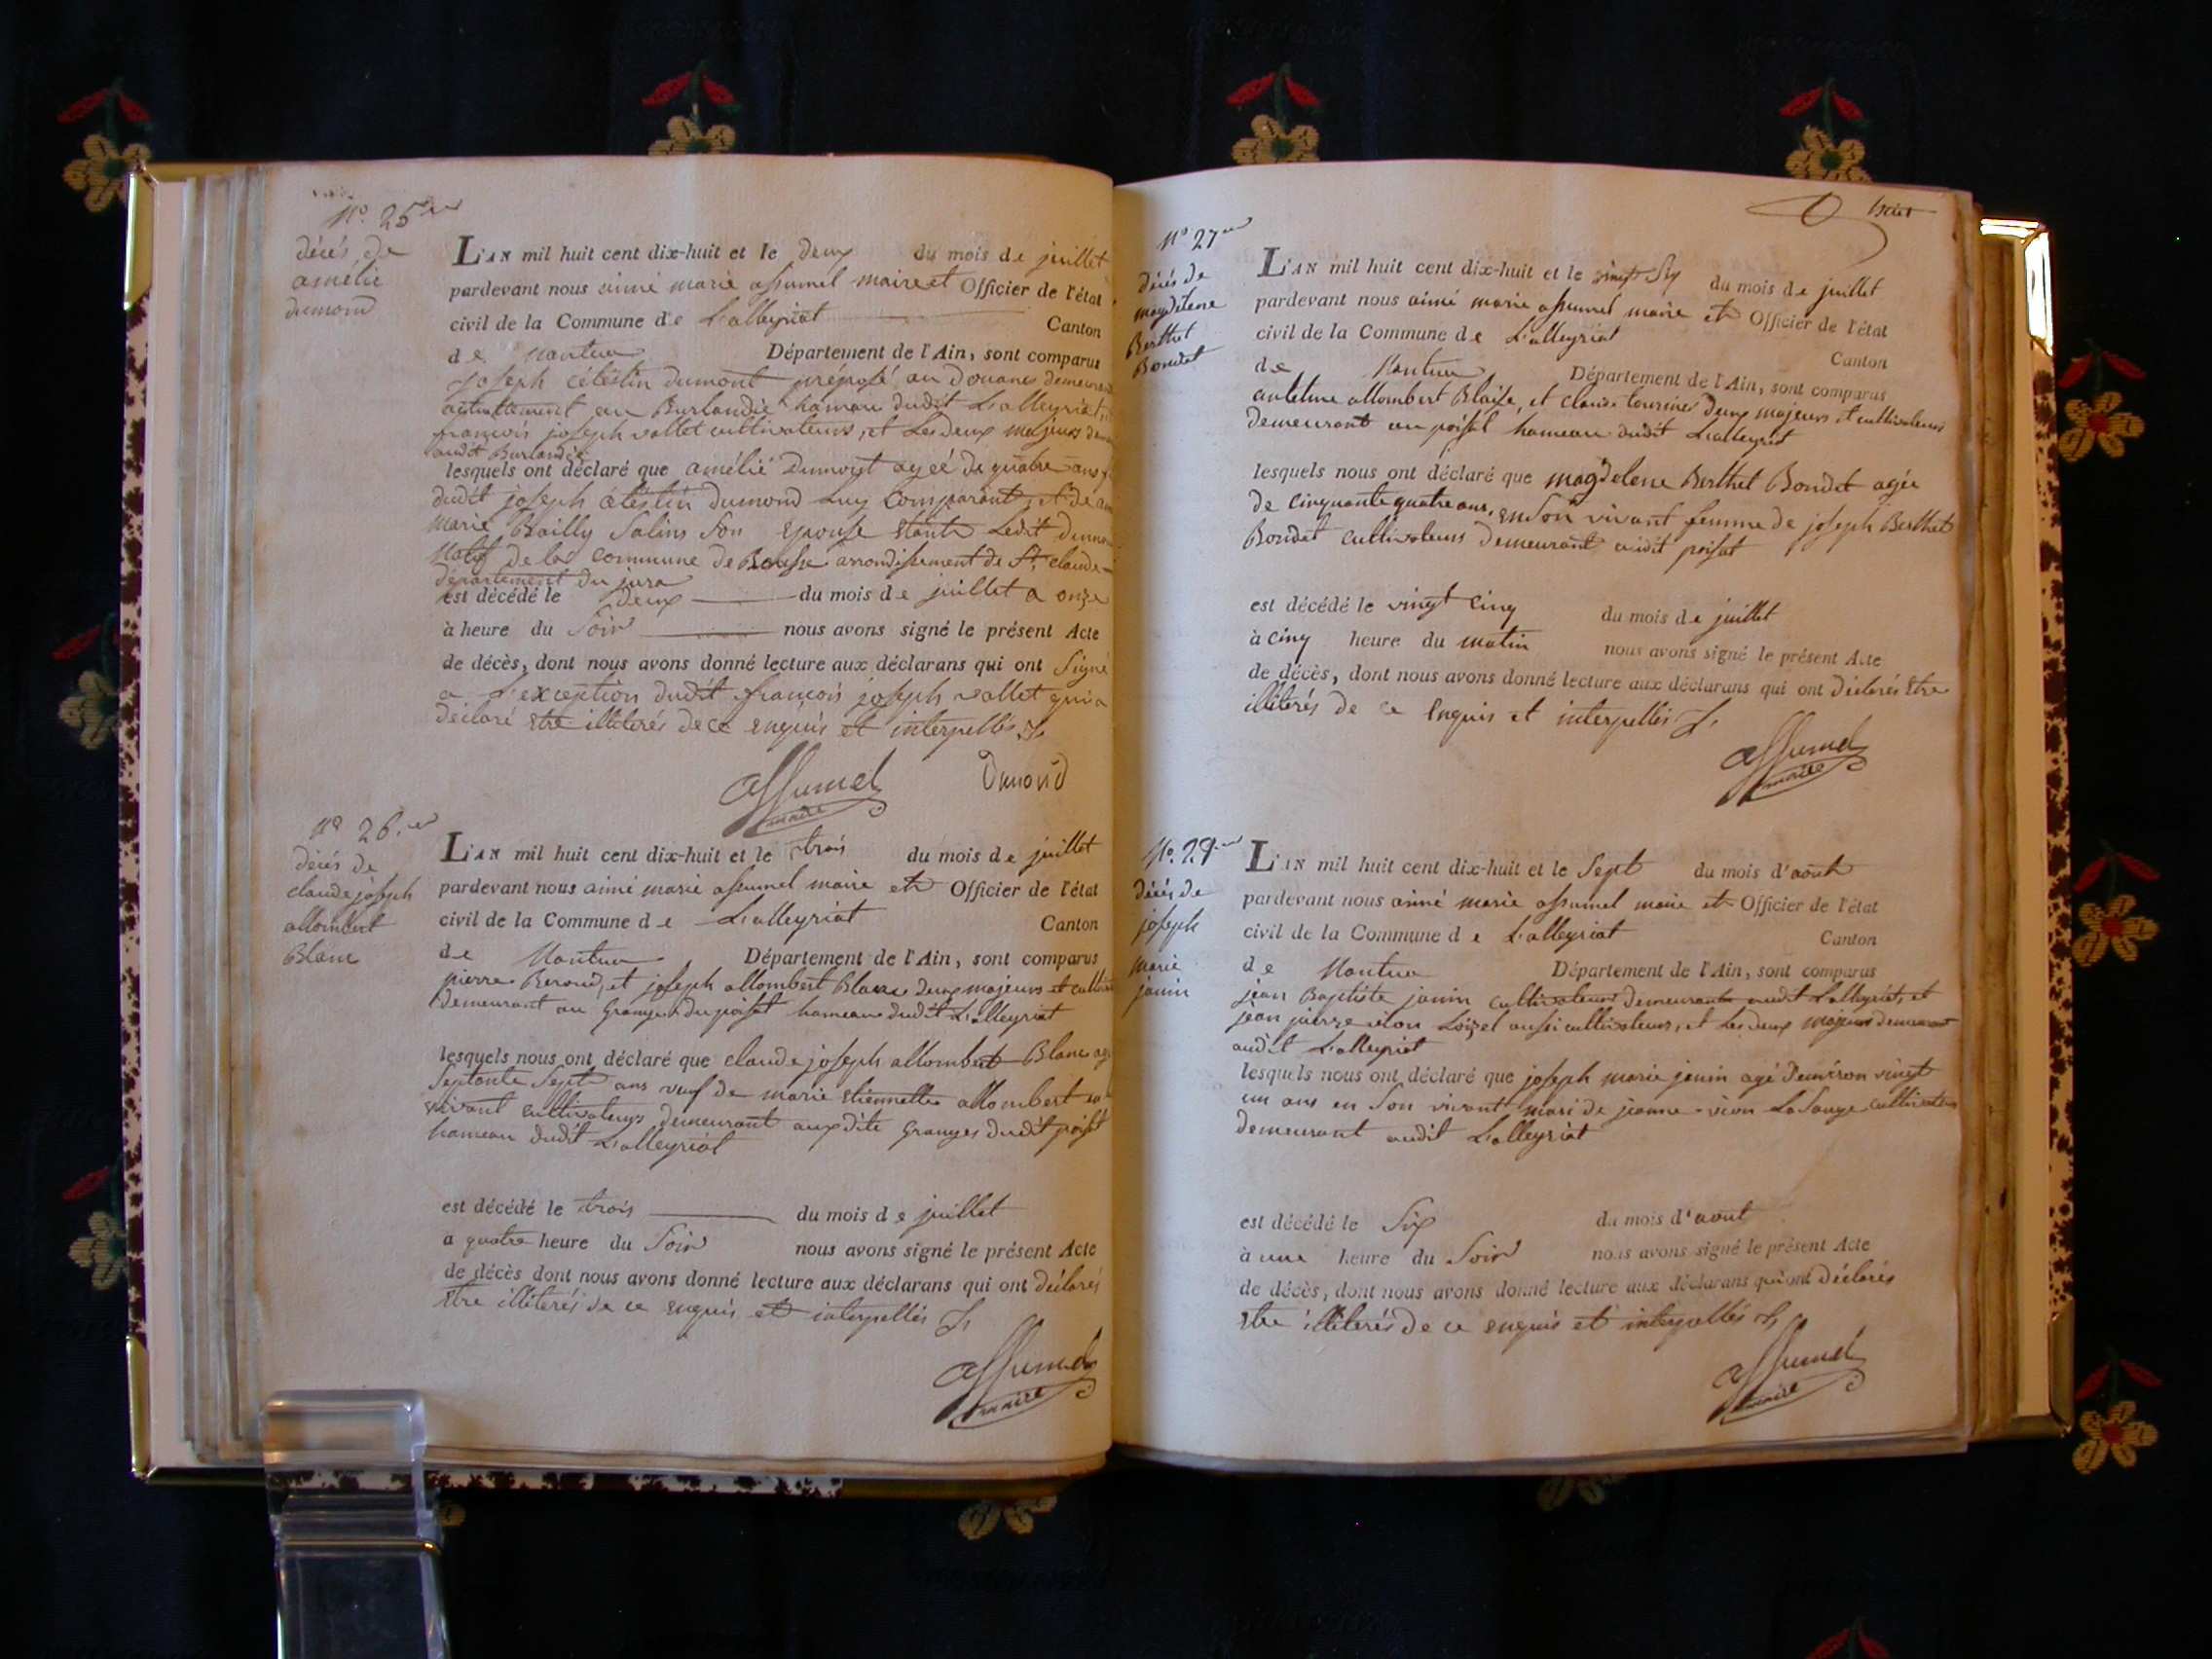 N.º 25
décés de
amélie
dumond
L'AN mil huit cent dix-huit et le deux du mois de juillet
pardevant nous aimé marie assumel maire et Officier de l'état
civil de la Commune de Lalleyriat Canton
de Nantua Département de l'Ain, sont comparus
joseph célestin dumont préposé au Douanes
actuellement au Burlandié hamau dudit Lalleyriat,
françois joseph vallet cultivateurs, et Les deux majeurs
audit Burlandié
lesquels ont déclaré que amélié Dumont agéé de quatre ans
dudit joseph célestin dumond Luy Comparant, et de
marie Bailly Salins Son Epouse Ledit
Natif de la commune de arrondissement de St claude
département du jura
est décédé le deux du mois de juillet a onze
à heure du Soir nous avons signé le présent Acte
de décès, dont nous avons donné lecture aux déclarans qui ont Signé
a L'exception dudit françois joseph vallet qui a
déclaré Etre illiterés de ce enquis et interpellés
assumel maire
Dumond
Nº 26
décés de
claude joseph
allombert
Blanc
L'AN mil huit cent dix-huit et le trois du mois de juillet
pardevant nous aimé marie assumel maire et Officier de l'état
civil de la Commune de Lalleyriat Canton
de Nantua Département de l'Ain, sont comparus
pierre Beroud, et joseph allombert Blanc deux majeurs et
Demeurant au Granges du poisat hameau dudit Lalleyriat
lesquels nous ont déclaré que claude joseph allombert Blanc
Septante Sept ans veuf de marie Etiennette allombert
vivant cultivateurs demeurant auxdite Granges dudit poisat
hameau dudit Lalleyriat
est décédé le trois du mois de juillet
a quatre heure du Soir nous avons signé le présent Acte
de décès dont nous avons donné lecture aux déclarans qui ont déclarés
Etre illiterés de ce enquis et interpellés
assumel
maire
Nº 27
décés de
magdelene
Berthet
Bondet
L'AN mil huit cent dix-huit et le vingt Six du mois de juillet
pardevant nous aimé marie assumel maire et Officier de l'état
civil de la Commune de Lalleyriat Canton
de Nantua Département de l'Ain, sont comparus
antelme allombert Blaise, et claude tournier deux majeurs et cultivateurs
demeurant au poisat hameau dudit Lalleyriat
lesquels nous ont déclaré que magdelene Berthet Bondet agée
de cinquante quatre ans, en Son vivant femme de joseph Berthet
Bondet cultivateurs demeurant audit poisat
est décédé le vingt cinq du mois de juillet
à cinq heure du matin nous avons signé le présent Acte
de décès, dont nous avons donné lecture aux déclarans qui ont déclarés Etre
illiterés de ce Enquis et interpellés
assumel
maire
décés de
joseph
marie
janin
L'AN mil huit cent dix-huit et le Sept du mois d'aout
pardevant nous aimé marie assumel maire et Officier de l'état
civil de la Commune de Lalleyriat Canton
de Nantua Département de l'Ain, sont comparus
jean Baptiste janin cultivateurs demeurant audit Lalleyriat, et
jean pierre vion Loizel aussi cultivateurs, et Les deux majeurs demeurant
audit Lalleyriat
lesquels nous ont déclaré que joseph marie janin agé d'environ vingt
un ans en Son vivant mari de jeanne vion cultivateurs
demeurant audit Lalleyriat
est décédé le Six du mois d'aout
à une heure du Soir nous avons signé le présent Acte
de décès, dont nous avons donné lecture aux déclarans qui ont déclarés
Etre illiterés de ce enquis et interpellés
assumel
maire